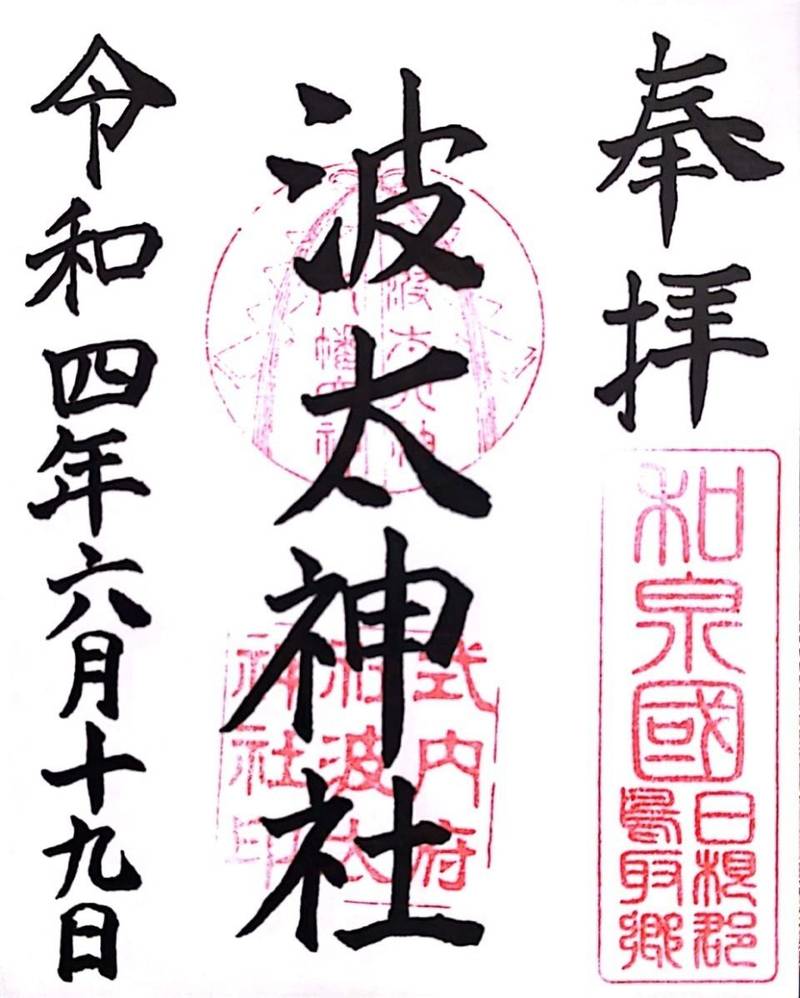 奉拝
和泉國
日根郡
鳥取郷
波太神社
波太大神
八幡大神
式内府
社波太
神社印
令和四年六月十九日